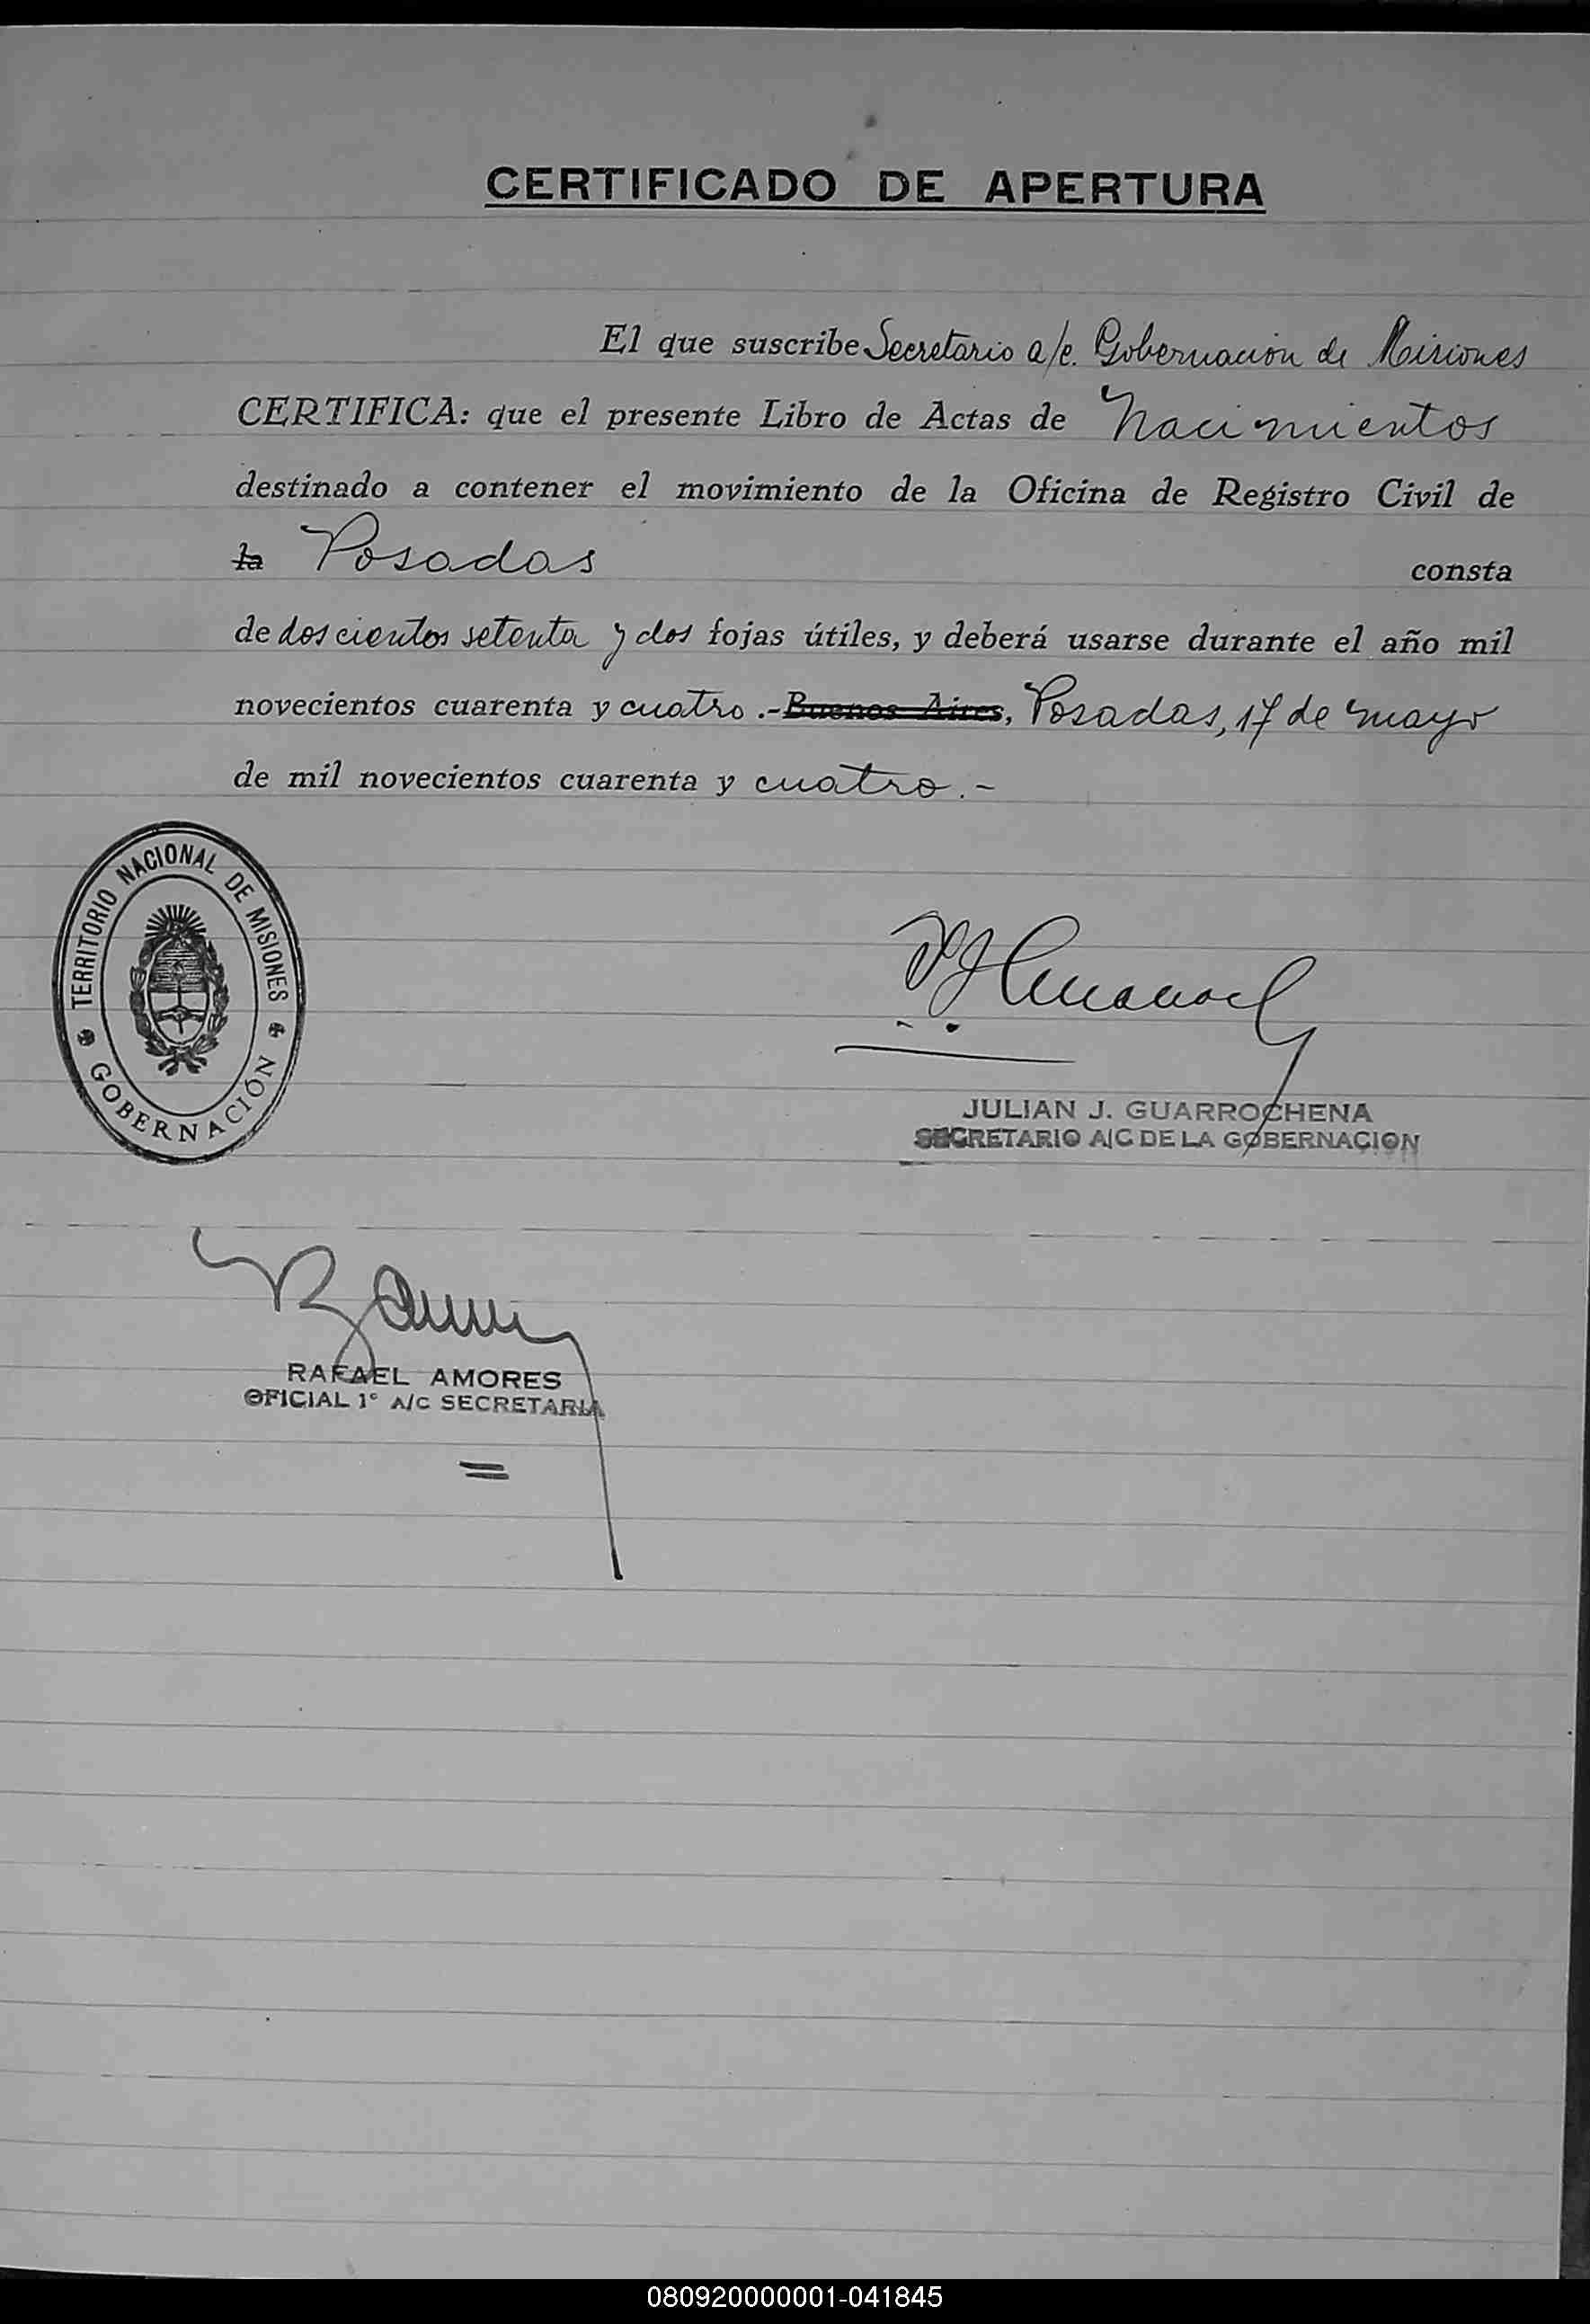 CERTIFICADO DE APERTURA
El que suscribe Secretario a/c. Gobernación de Misiones
CERTIFICA: que el presente Libro de Actas de Nacimientos
destinado a contener el movimiento de la Oficina de Registro Civil de
la Posadas consta
de doscientos setenta y dos fojas útiles, y deberá usarse durante el año mil
novecientos cuarenta y cuatro .- Buenos Aires, Posadas, 17 de mayo
de mil novecientos cuarenta y cuatro.-
TERRITORIO NACIONAL DE MISIONES
GOBERNACIÓN
JULIAN J. GUARROCHENA
SECRETARIO A/C DE LA GOBERNACION
RAFAEL AMORES
OFICIAL 1° A/C SECRETARIA
080920000001-041845